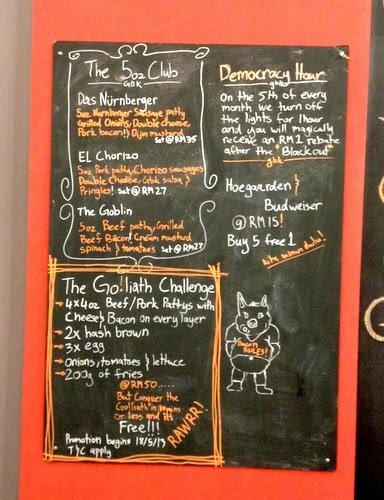 The 5oz Club
GBK
Das Nürnberger
5oz Nurnberger Sausage patty
Grilled Onions, Double Cheese,
Pork bacon!! Dijon mustard
Set @ RM35
EL Chorizo
5oz Pork patty, Chorizo sausages
Double Cheese, Gbk salsa &
Pringles! Set @ RM27
The Goblin
5oz Beef patty, Grilled
Beef Bacon, Cream mustard
spinach & tomatoes Set @ RM27
The Go!liath Challenge
→ 4x4oz Beef/Pork Pattys with
Cheese & Bacon on every layer
→ 2x hash brown
→ 3x egg
→ Onions, tomatoes & lettuce
→ 200g of fries
@ RM50.....
But Conquer the
Go!liath in mins
or less and it's
Free!!!
RAWRR!
Promotion begins 18/5/19
T/C apply
Democracy Hour
gbk
On the 5th of every
month we turn off
the lights for 1hour
and you will magically
receive an RM1 rebate
after the "Blackout"
gbk
Hoegaarden &
Budweiser
@ RM15!
Buy 5 free 1
Bacon
RULES!